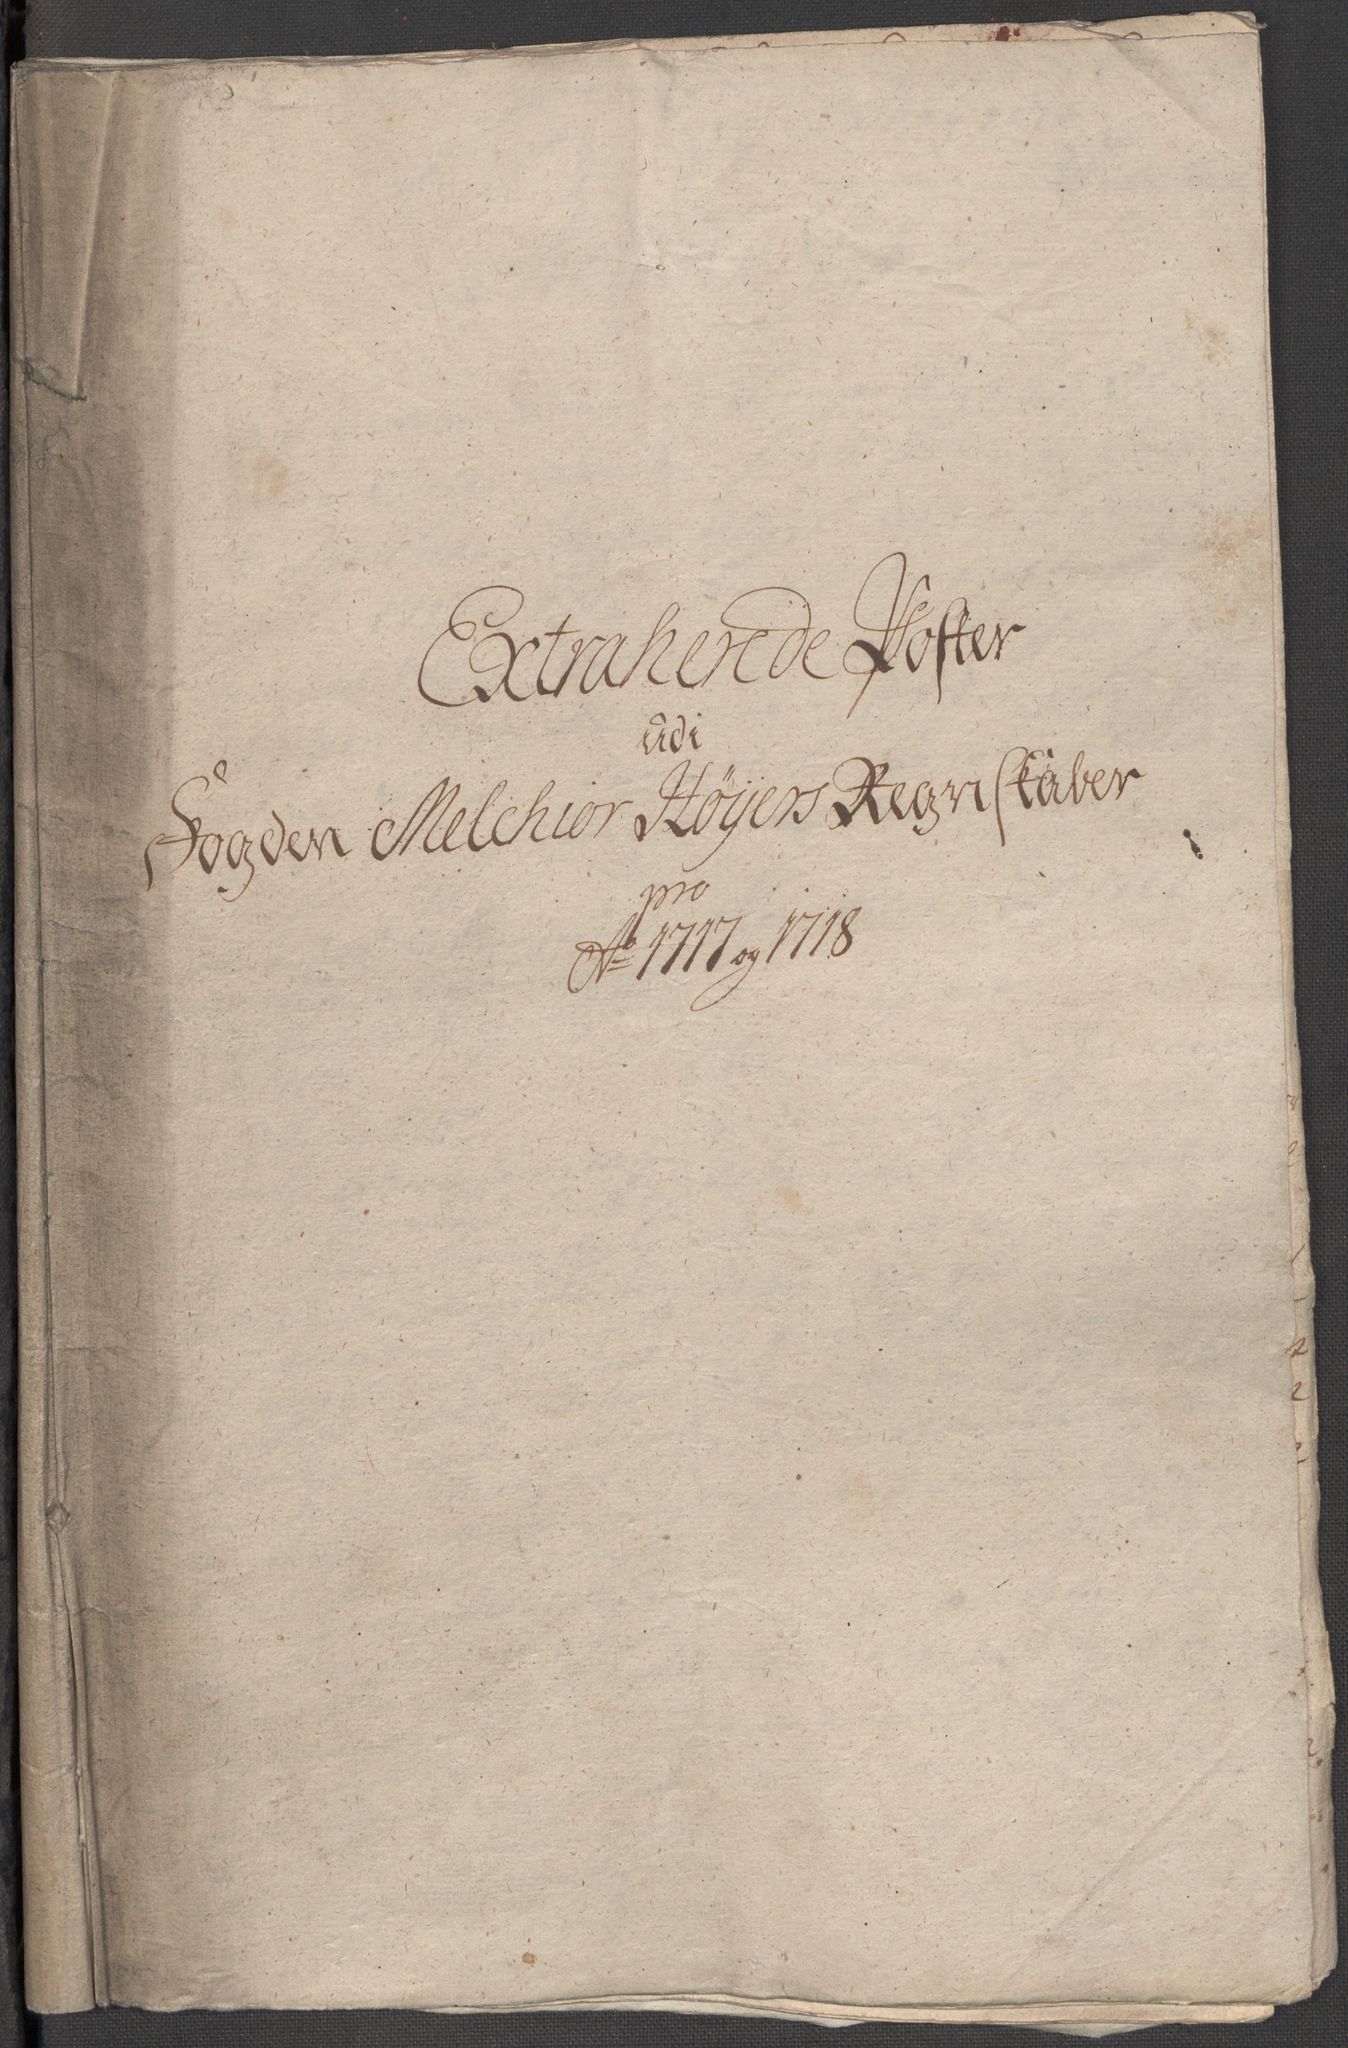 Extraherede Poster
udi
Fogden Melchior Høÿers Regnskaber
pro
Ao 1717 og 1718